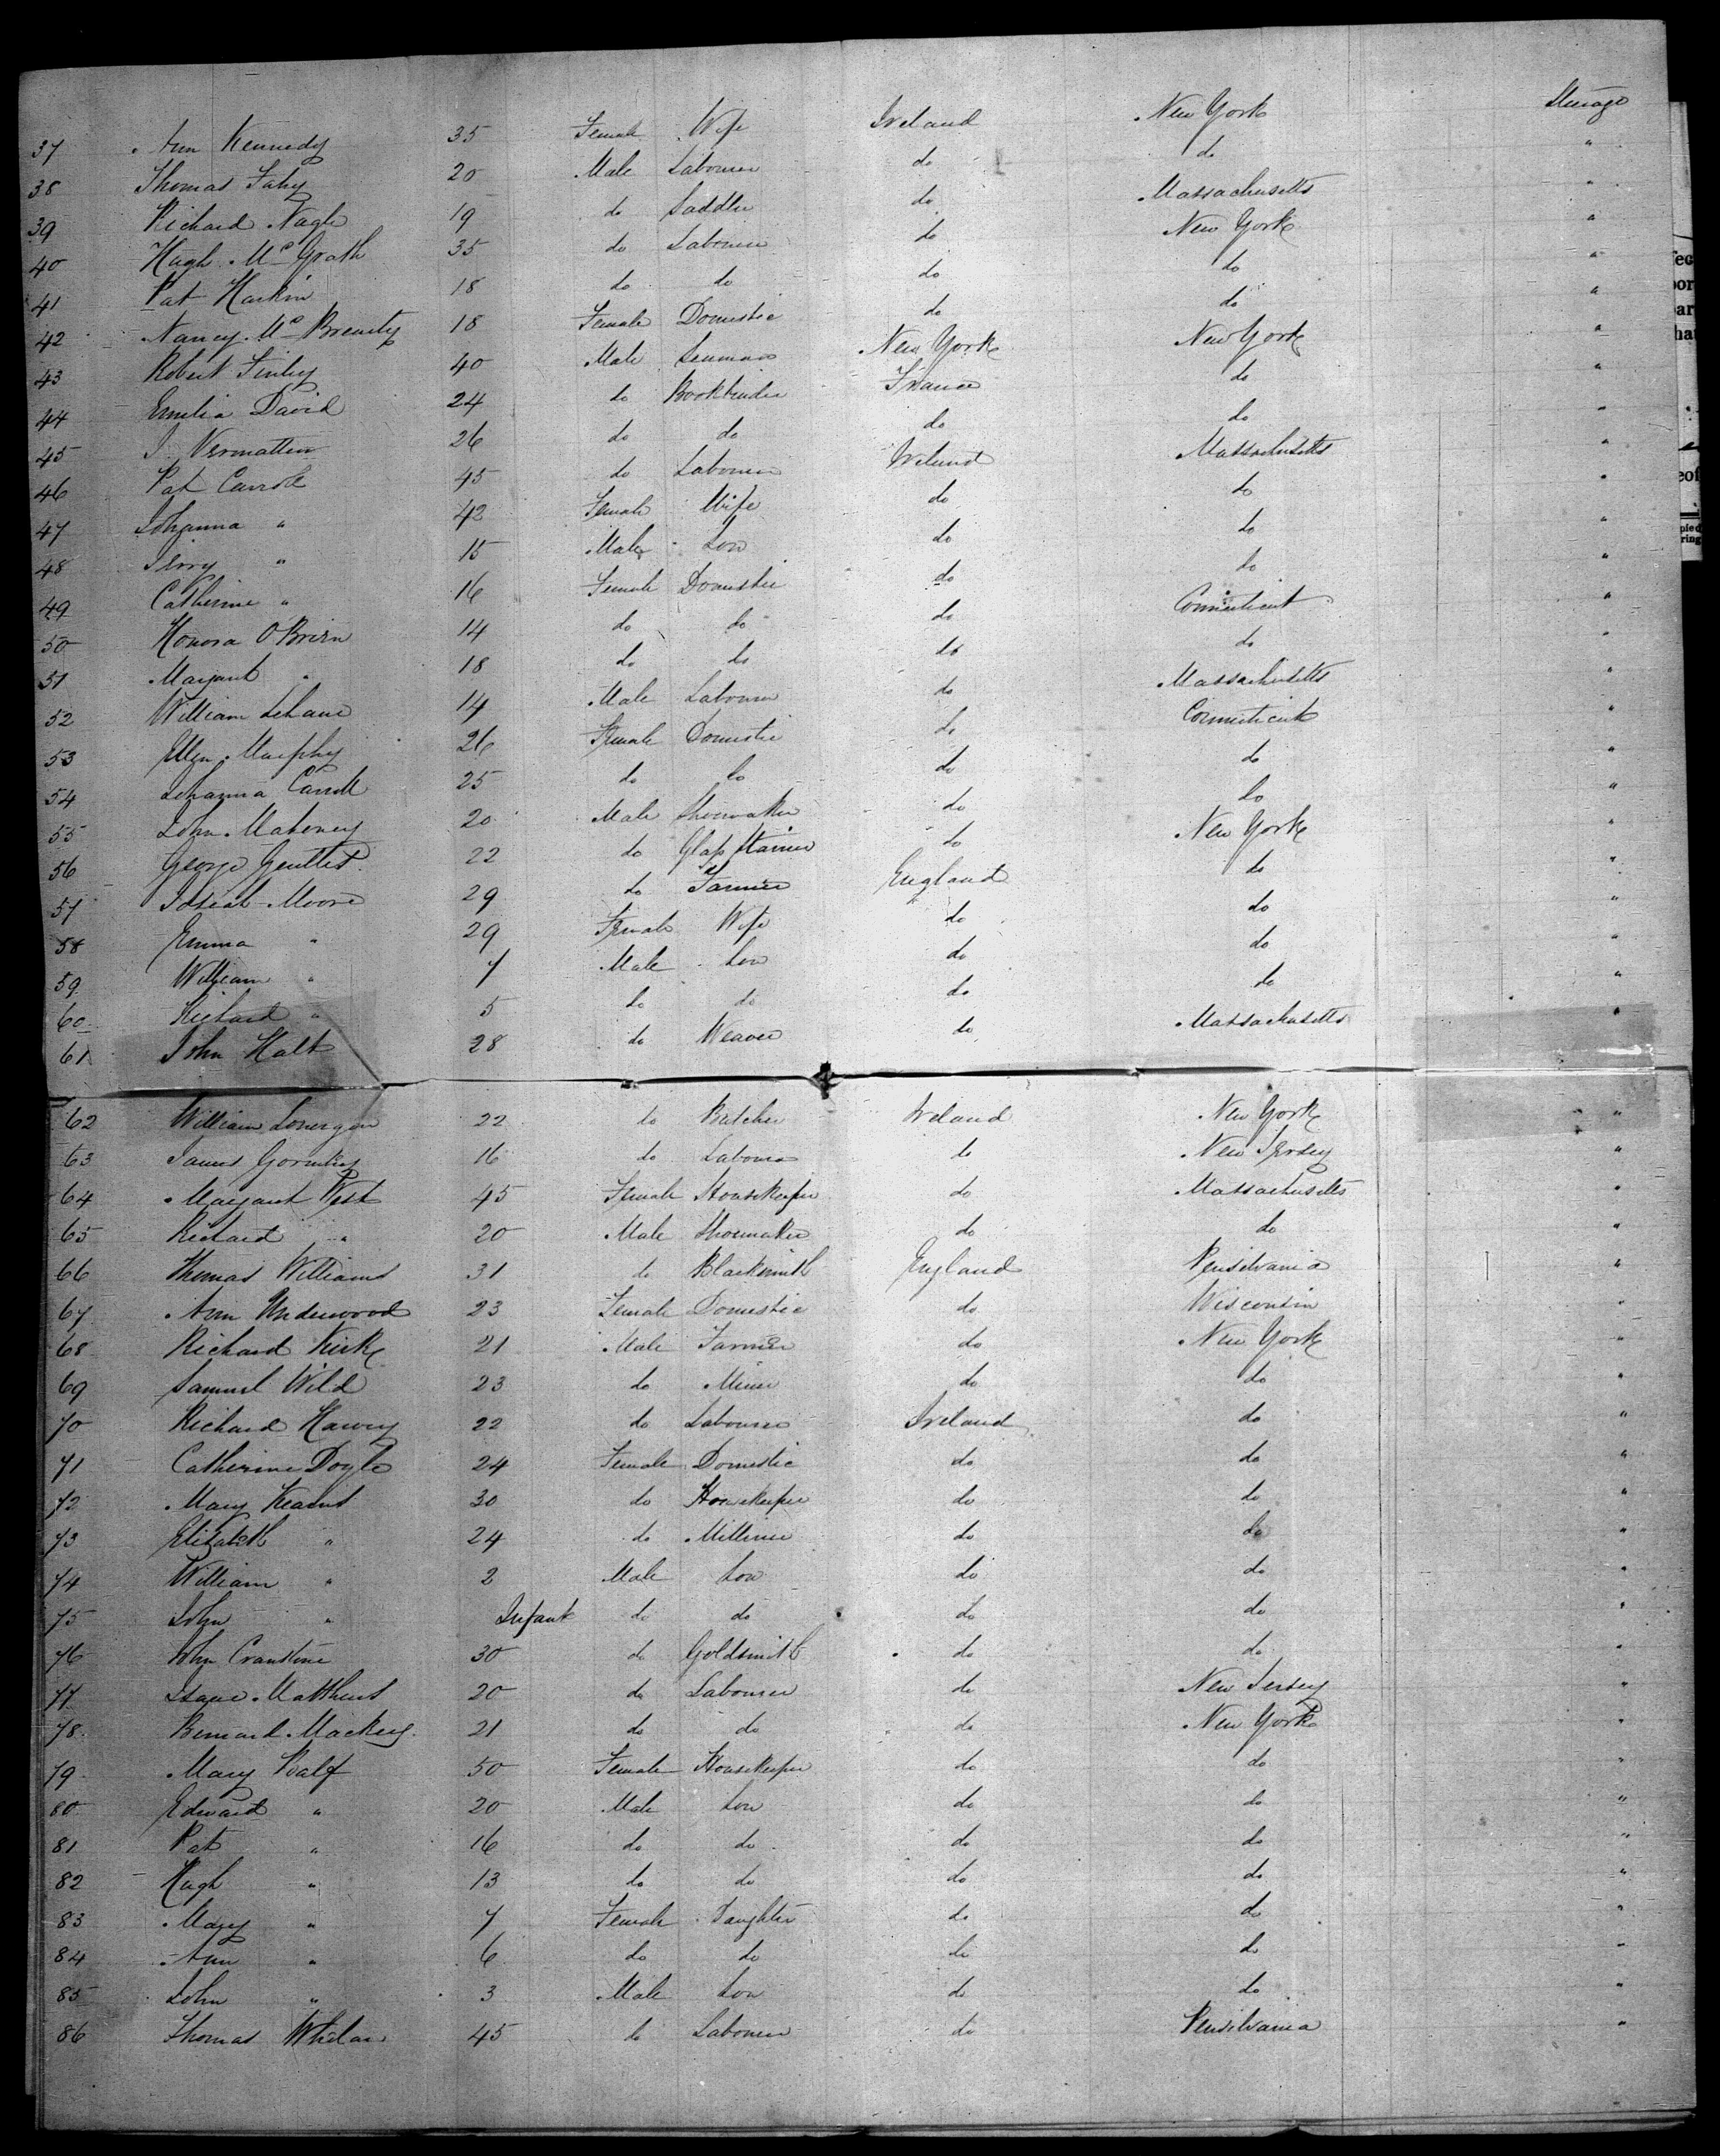 37 Ann Kennedy 35 Female Wife Ireland New York Steerage
38 Thomas Fahy 20 Male Labourer do do "
39 Richard Nagle 19 do Saddler do Massachusetts "
40 Hugh McGrath 35 do Labourer do New York "
41 Pat Harkin 18 do do do do "
42 Nancy Mc 18 Female Domestic do do "
43 Robert Finley 40 Male Seaman New York New York "
44 Emelia David 24 do Bookbinder France do "
45 26 do do do do "
46 Pat Carroll 45 do Labourer Ireland Massachusetts "
47 Johanna " 42 Female Wife do do "
48 Jerry " 15 Male Son do do "
49 Catherine " 16 Female Domestic do do "
50 Honora O'Brien 14 do do do Connecticut "
51 Margaret " 18 do do do do "
52 William Lehane 14 Male Labourer do Massachusetts "
53 Ellen Murphy 26 Female Domestic do Connecticut "
54 Johanna Carroll 25 do do do do "
55 John Mahoney 20 Male Shoemaker do do "
56 George 22 do Glass Stainer do New York "
57 Josiah Moore 29 do Farmer England do "
58 Emma " 29 Female Wife do do "
59 William " 7 Male Son do do "
60 Richard " 5 do do do do "
61 John Halt 28 do Weaver do Massachusetts "
62 William Lonergan 22 do Butcher Ireland New York "
63 James Gormley 16 do Labourer do New Jersey "
64 Margaret West 45 Female Housekeeper do Massachusetts "
65 Richard " 20 Male Shoemaker do do "
66 Thomas Williams 31 do Blacksmith England Pensilvania "
67 Ann Underwood 23 Female Domestic do Wisconsin "
68 Richard Kirk 21 Male Farmer do New York "
69 Samuel Wild 23 do Miner do do "
70 Richard Harvey 22 do Labourer Ireland do "
71 Catherine Doyle 24 Female Domestic do do "
72 Mary Kearns 30 do Housekeeper do do "
73 Elizabeth " 24 do Milliner do do "
74 William " 2 Male Son do do "
75 John " Infant do do do do "
76 John Cranstone 30 do Goldsmith do do "
77 Isaac Matthews 20 do Labourer do New Jersey "
78 Bernard Mackey 21 do do do New York "
79 Mary Balf 50 Female Housekeeper do do "
80 Edward " 20 Male Son do do "
81 Pat " 16 do do do do "
82 Hugh " 13 do do do do "
83 Mary " 7 Female Daughter do do "
84 Ann " 6 do do do do "
85 John " 3 Male Son do do "
86 Thomas Whelan 45 do Labourer do Pensilvania "